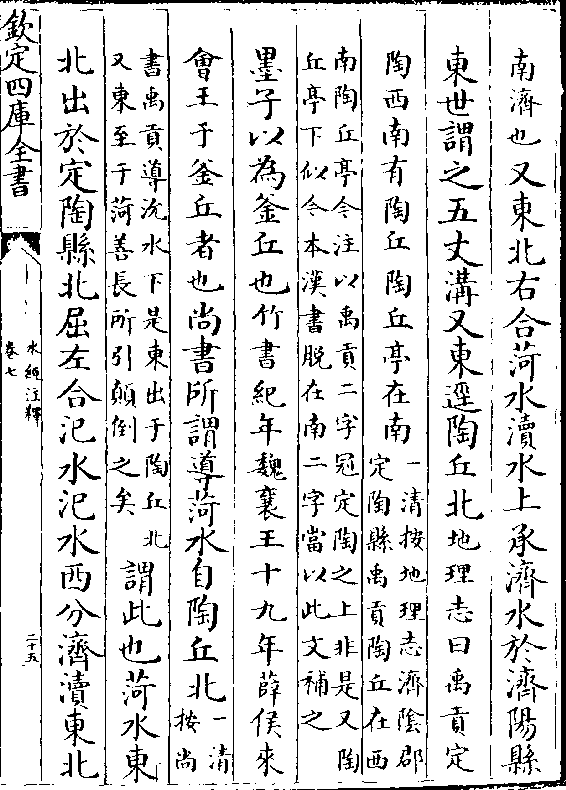 南濟也又東北右合菏水瀆水上承濟水於濟陽縣
東世謂之五丈溝又東逕陶丘北地理志曰禹貢定
陶西南有陶丘陶丘亭在南
一清按地理志濟陰郡
定陶縣禹貢陶丘在西
南陶丘亭今注以禹貢二字冠定陶之上非是又陶
丘亭下似今本漢書脱在南二字當以此文補之
墨子以為釜丘也竹書紀年魏襄王十九年薛侯來
㑹王于釜丘者也尚書所謂導菏水自陶丘北
一清
按尚
書禹貢導沇水下是東出于陶丘北
又東至于菏善長所引顛倒之矣
謂此也菏水東
北出於定陶縣北屈左合汜水汜水西分濟瀆東北
欽定四庫全書
水經注釋
卷七
二十五